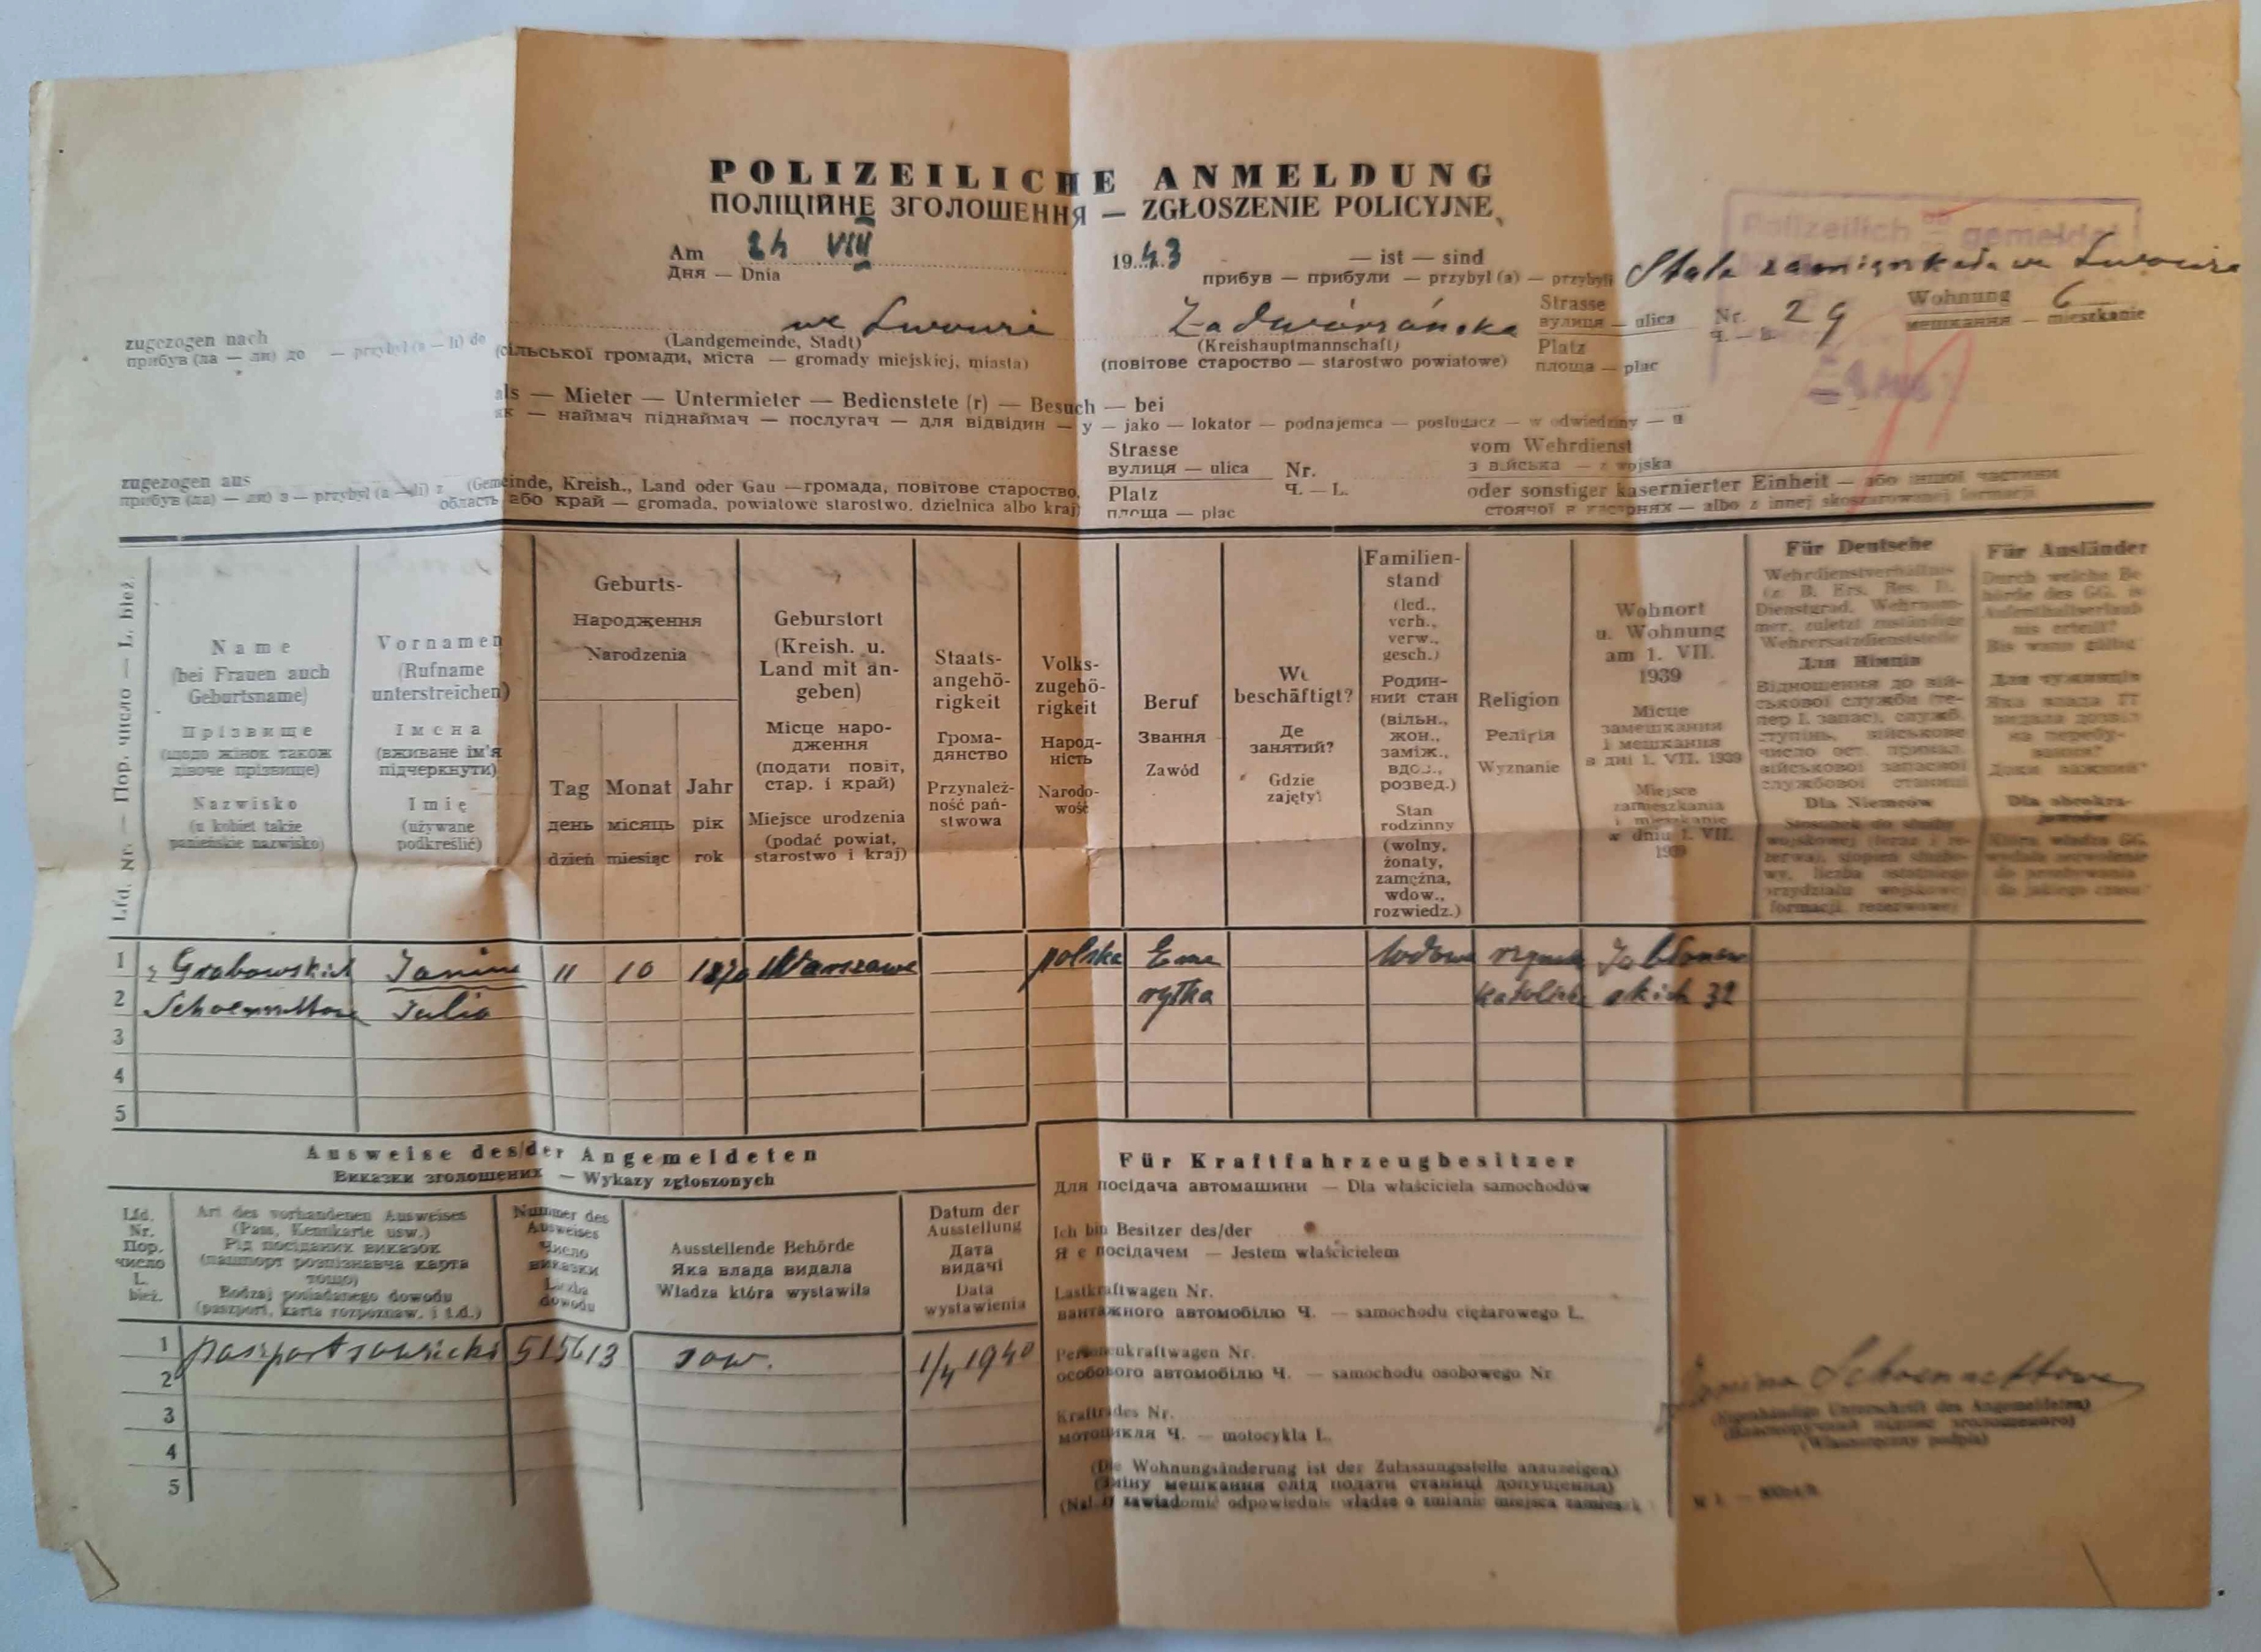 POLIZEILICHE ANMELDUNG
ПОЛІЦІЙНЕ ЗГОЛОШЕННЯ — ZGŁOSZENIE POLICYJNE
Polizeilich gemeldet
Am 24 VIII 1943 — ist — sind
Дня — Dnia прибув — прибули — przybył (a) — przybyli Stale zamieszkała we Lwowie
zugezogen nach we Lwowie Zadwórzańska Strasse Nr. 29 Wohnung 6
вулиця — ulica Ч. — L. мешкання — mieszkanie
прибув (ла — ли) до — przybył (a — li) do (Landgemeinde, Stadt) (Kreishauptmannschaft) Platz
(сільської громади, міста — gromady miejskiej, miasta) (повітове староство — starostwo powiatowe) площа — plac
als — Mieter — Untermieter — Bedienstete (r) — Besuch — bei
як — наймач піднаймач — послугач — для відвідин — у — jako — lokator — podnajemca — posługacz — w odwiedziny — u
Strasse vom Wehrdienst
вулиця — ulica Nr. з війська — z wojska
zugezogen aus (Gemeinde, Kreish., Land oder Gau — громада, повітове староство, Platz Ч. — L. oder sonstiger kasernierter Einheit — або іншої частини
прибув (ла) — ли) з — przybył (a — li) z область або край — gromada, powiatowe starostwo, dzielnica albo kraj) площа — plac стоячої в касарнях — albo z innej skoszarowanej formacji
Lfd. Nr. — Пор. число — L. bież.
Name
(bei Frauen auch
Geburtsname)
Прізвище
(щодо жінок також
дівоче прізвище)
Nazwisko
(u kobiet także
panieńskie nazwisko)
Vornamen
(Rufname
unterstreichen)
Імена
(вживане ім'я
підчеркнути)
Imię
(używane
podkreślić)
Geburts-
Народження
Narodzenia
Tag Monat Jahr
день місяць рік
dzień miesiąc rok
Geburstort
(Kreish. u.
Land mit an-
geben)
Місце наро-
дження
(подати повіт,
стар. і край)
Miejsce urodzenia
(podać powiat,
starostwo i kraj)
Staats-
angehö-
rigkeit
Грома-
дянство
Przynależ-
ność pań-
stwowa
Volks-
zugehö-
rigkeit
Народ-
ність
Narodo-
wość
Beruf
Звання
Zawód
Wo
beschäftigt?
Де
занятий?
Gdzie
zajęty?
Familien-
stand
(led.,
verh.,
verw.,
gesch.)
Родин-
ний стан
(вільн.,
жон.,
заміж.,
вдов.,
розвед.)
Stan
rodzinny
(wolny,
żonaty,
zamężna,
wdow.,
rozwiedz.)
Religion
Релігія
Wyznanie
Wohnort
u. Wohnung
am 1. VII.
1939
Місце
замешкання
і мешкання
в дні 1. VII. 1939
Miejsce
zamieszkania
i mieszkanie
w dniu 1. VII.
1939
Für Deutsche
Wehrdienstverhältnis
(z. B. Ers. Res. I).
Dienstgrad, Wehrnum-
mer, zuletzt zuständige
Wehrersatzdienststelle
Для Німців
Відношення до вій-
ськової служби (те-
пер І. запас), служб.
ступінь, військове
число ост. приналеж.
військової запасної
службової станиці
Dla Niemców
Stosunek do służby
wojskowej (teraz i re-
zerwa), stopień służbo-
wy, liczba ostatniego
przydziału wojskowej
formacji rezerwowej
Für Ausländer
Durch welche Be-
hörde des GG. ist
Aufenthaltserlaub-
nis erteilt?
Bis wann gültig?
Для чужинців
Яка влада ГГ
видала дозвіл
на перебу-
вання?
Доки важний?
Dla obcokra-
jowców
Która władza GG.
wydała zezwolenie
do przebywania
do jakiego czasu?
1 z Grabowskich Janina 11 10 1870 Warszawa polska Eme wdowa rzymsk Jabłonow
2 Schoennettowa Julia rytka katolick skich 32
3
4
5
Ausweise des/der Angemeldeten
Виказки зголошених — Wykazy zgłoszonych
Lfd.
Nr.
Пор.
число
L.
bież.
Art des vorhandenen Ausweises
(Pass, Kennkarte usw.)
Рід посіданих виказок
(пашпорт розпізнавча карта
тощо)
Rodzaj posiadanego dowodu
(paszport, karta rozpoznaw. i t.d.)
Nummer des
Ausweises
Число
виказки
Liczba
dowodu
Ausstellende Behörde
Яка влада видала
Władza która wystawiła
Datum der
Ausstellung
Дата
видачі
Data
wystawienia
1 paszport sowiecki 515613 sow. 1/4 1940
2
3
4
5
Für Kraftfahrzeugbesitzer
Для посідача автомашини — Dla właściciela samochodów
Ich bin Besitzer des/der
Я є посідачем — Jestem właścicielem
Lastkraftwagen Nr.
вантажного автомобілю Ч. — samochodu ciężarowego L.
Personenkraftwagen Nr.
особового автомобілю Ч. — samochodu osobowego Nr
Kraftrades Nr.
мотоцикля Ч. — motocykla L.
(Die Wohnungsänderung ist der Zulassungsstelle anzuzeigen)
(Зміну мешкання слід подати станиці допущення)
(Należy zawiadomić odpowiednie władze o zmianie miejsca zamieszk.)
Janina Schoennettowa
(Eigenhändige Unterschrift des Angemeldeten)
(Власноручний підпис зголошеного)
(Własnoręczny podpis)